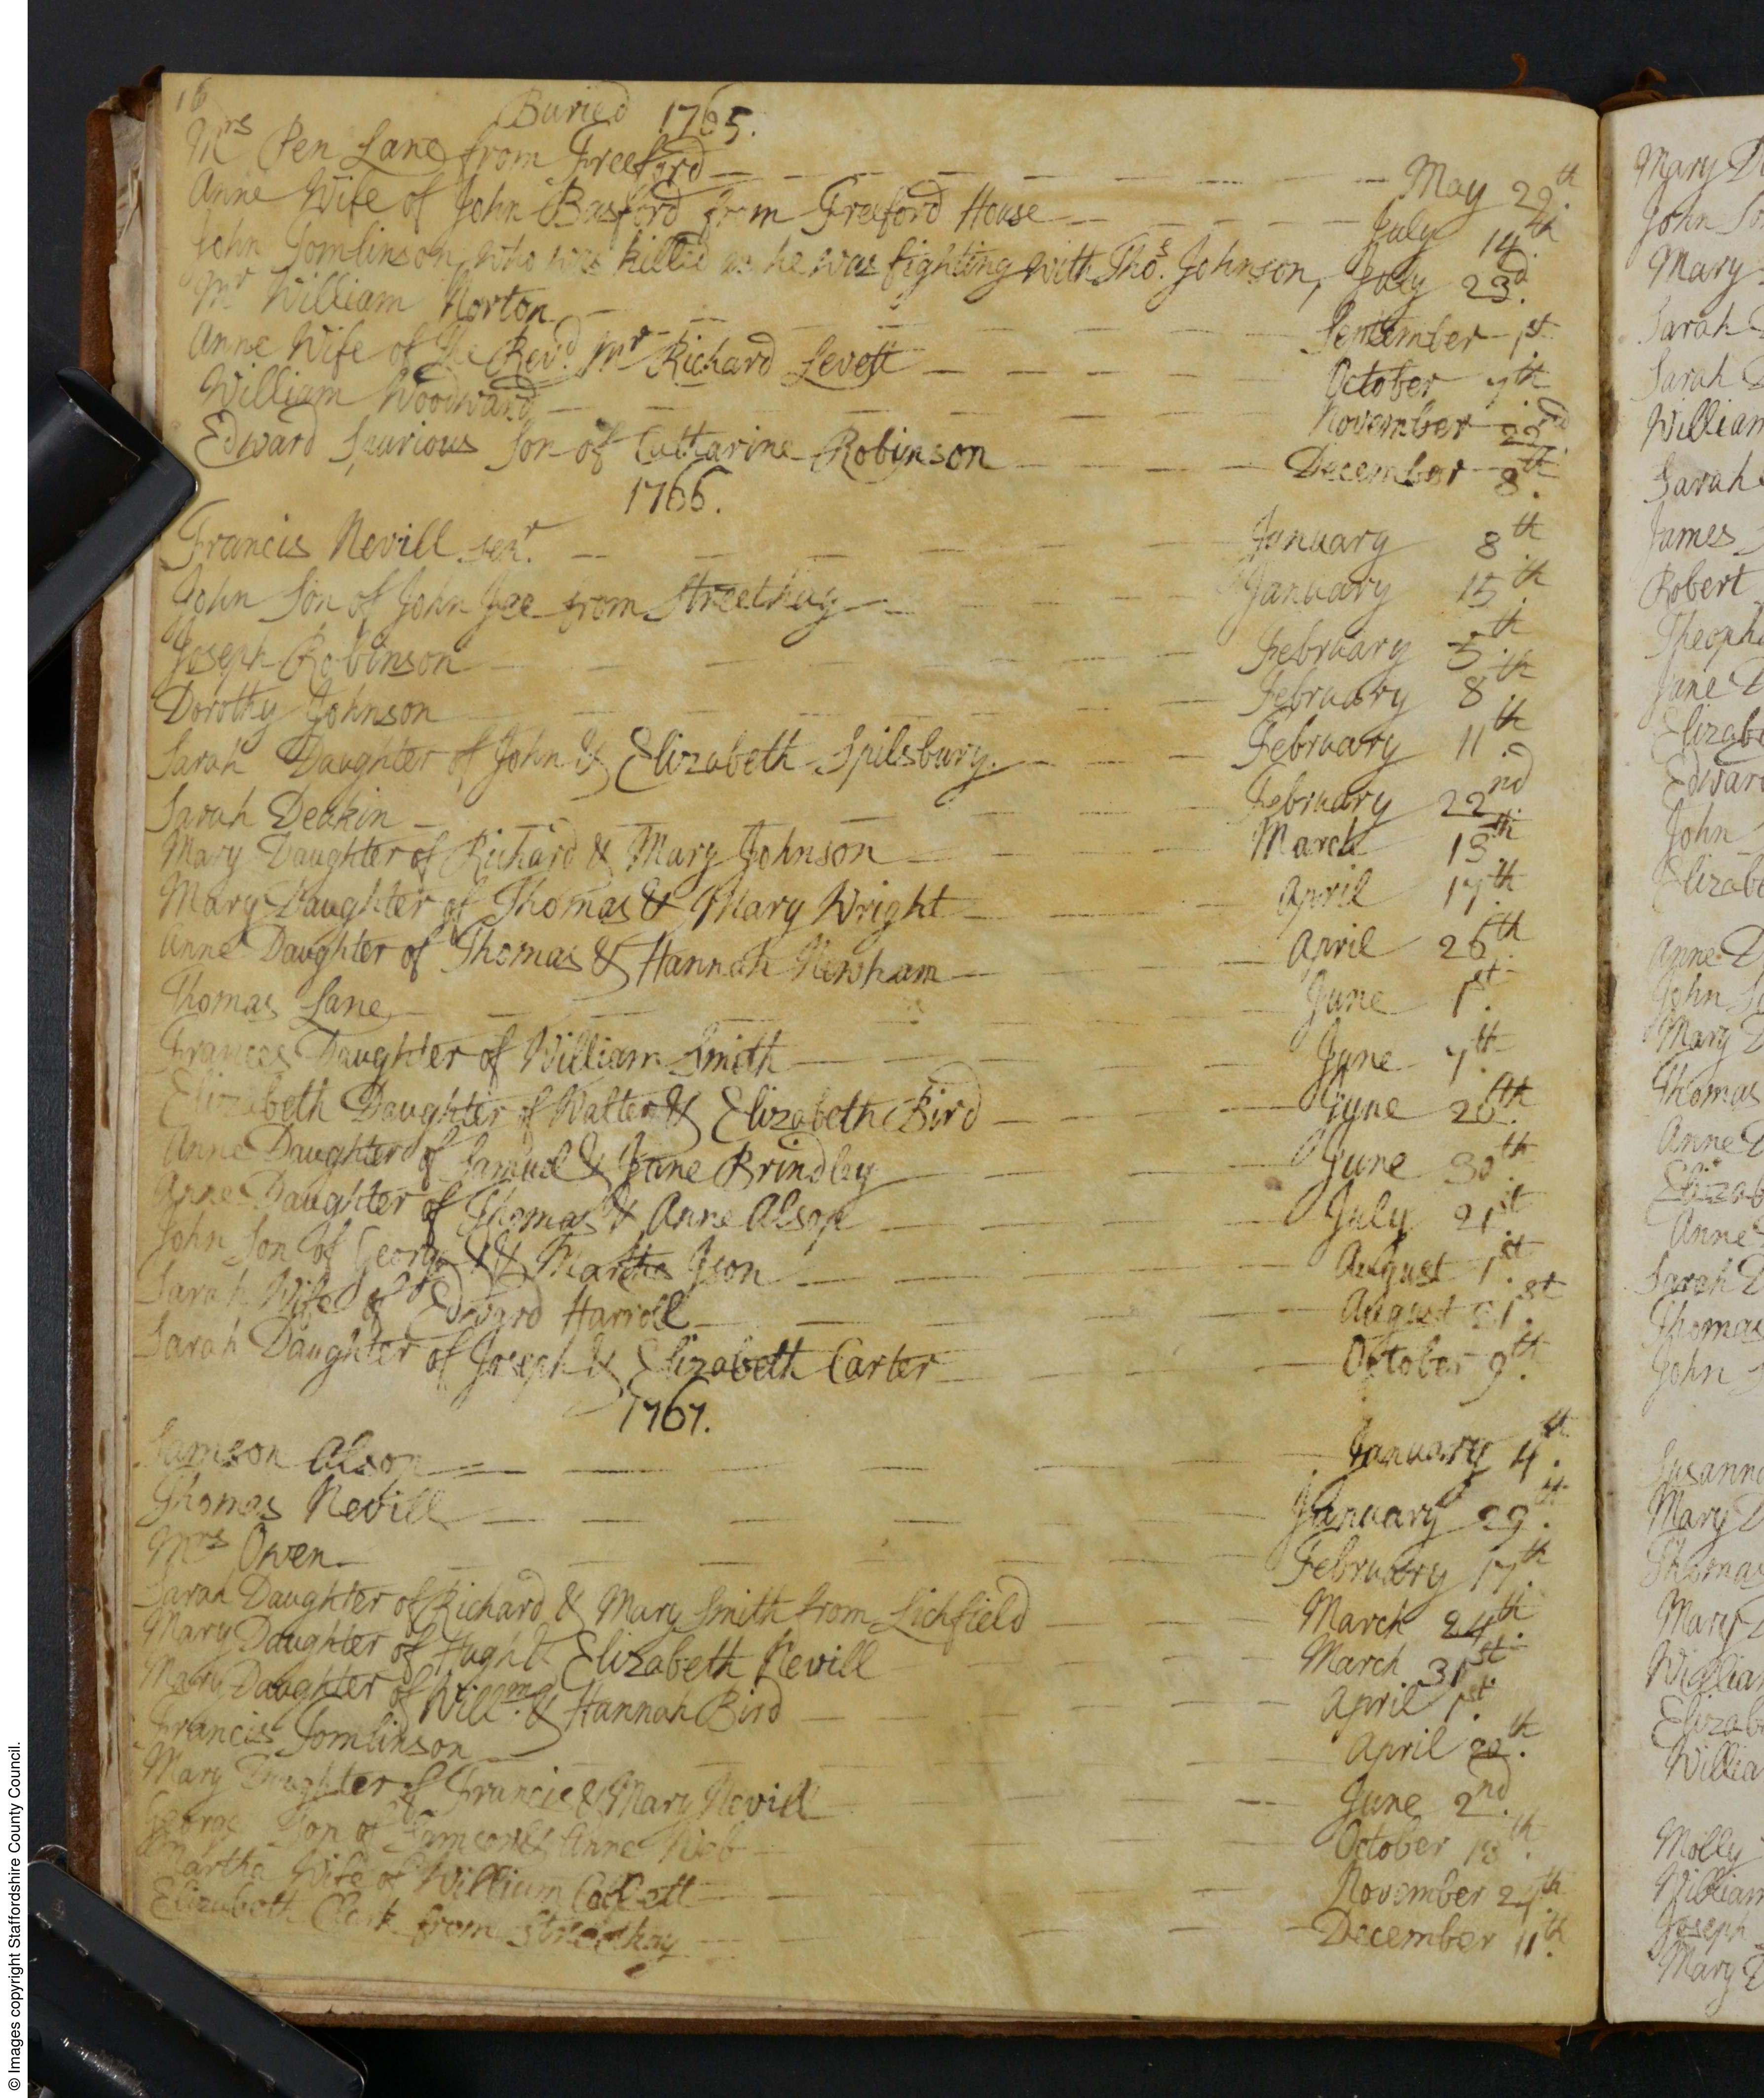 16
Buried 1765.
Mrs Pen Lane from Freeford May 29th
Anne Wife of John Basford from Freeford House July 14th
John Tomlinson, who was killed as he was fighting with Thos. Johnson, July 23d.
Mr William Norton September 1st
Anne Wife of The Revd. Mr Richard Levett October 7th
William Woodward November 22nd
Edward Spurious Son of Catharine Robinson December 8th.
1766.
Francis Nevill senr. January 8th
John Son of John Jee from Streethay January 15th
Joseph Robinson February 5th
Dorothy Johnson February 8th
Sarah Daughter of John & Elizabeth Spilsbury. February 11th
Sarah Deakin February 22nd
Mary Daughter of Richard & Mary Johnson March 13th
Mary Daughter of Thomas & Mary Wright April 17th
Anne Daughter of Thomas & Hannah Newham April 26th
Thomas Lane June 1st.
Frances Daughter of William Smith June 7th
Elizabeth Daughter of Walter & Elizabeth Bird June 20th
Anne Daughter of Samuel & Jane Brindley June 30th
Anne Daughter of Thomas & Anne Alsop July 21st
John Son of George & Martha Ison August 1st
Sarah Wife of Edward Harriell August 21st
Sarah Daughter of Joseph & Elizabeth Carter October 9th.
1767.
Samson Alsop January 4th.
Thomas Nevill January 29th.
Mrs Owen February 17th
Sarah Daughter of Richard & Mary Smith from Lichfield March 24th.
Mary Daughter of Hugh & Elizabeth Nevill March 31st
Mary Daughter of Willm. & Hannah Bird April 1st.
Francis Tomlinson April 20th.
Mary Daughter of Francis & Mary Nevill June 2nd.
George Son of Samson & Anne Web October 13th.
Martha Wife of William Collett November 27th
Elizabeth Clark from Streethay December 11th.
Mary
John
Mary
Sarah
Sarah
William
Sarah
James
Robert
Jane
John
Anne
John
Mary
Thomas
Anne
Anne
Sarah
Thomas
John
Mary
Thomas
Mary
Molly
William
Joseph
Mary
© Images copyright Staffordshire County Council.